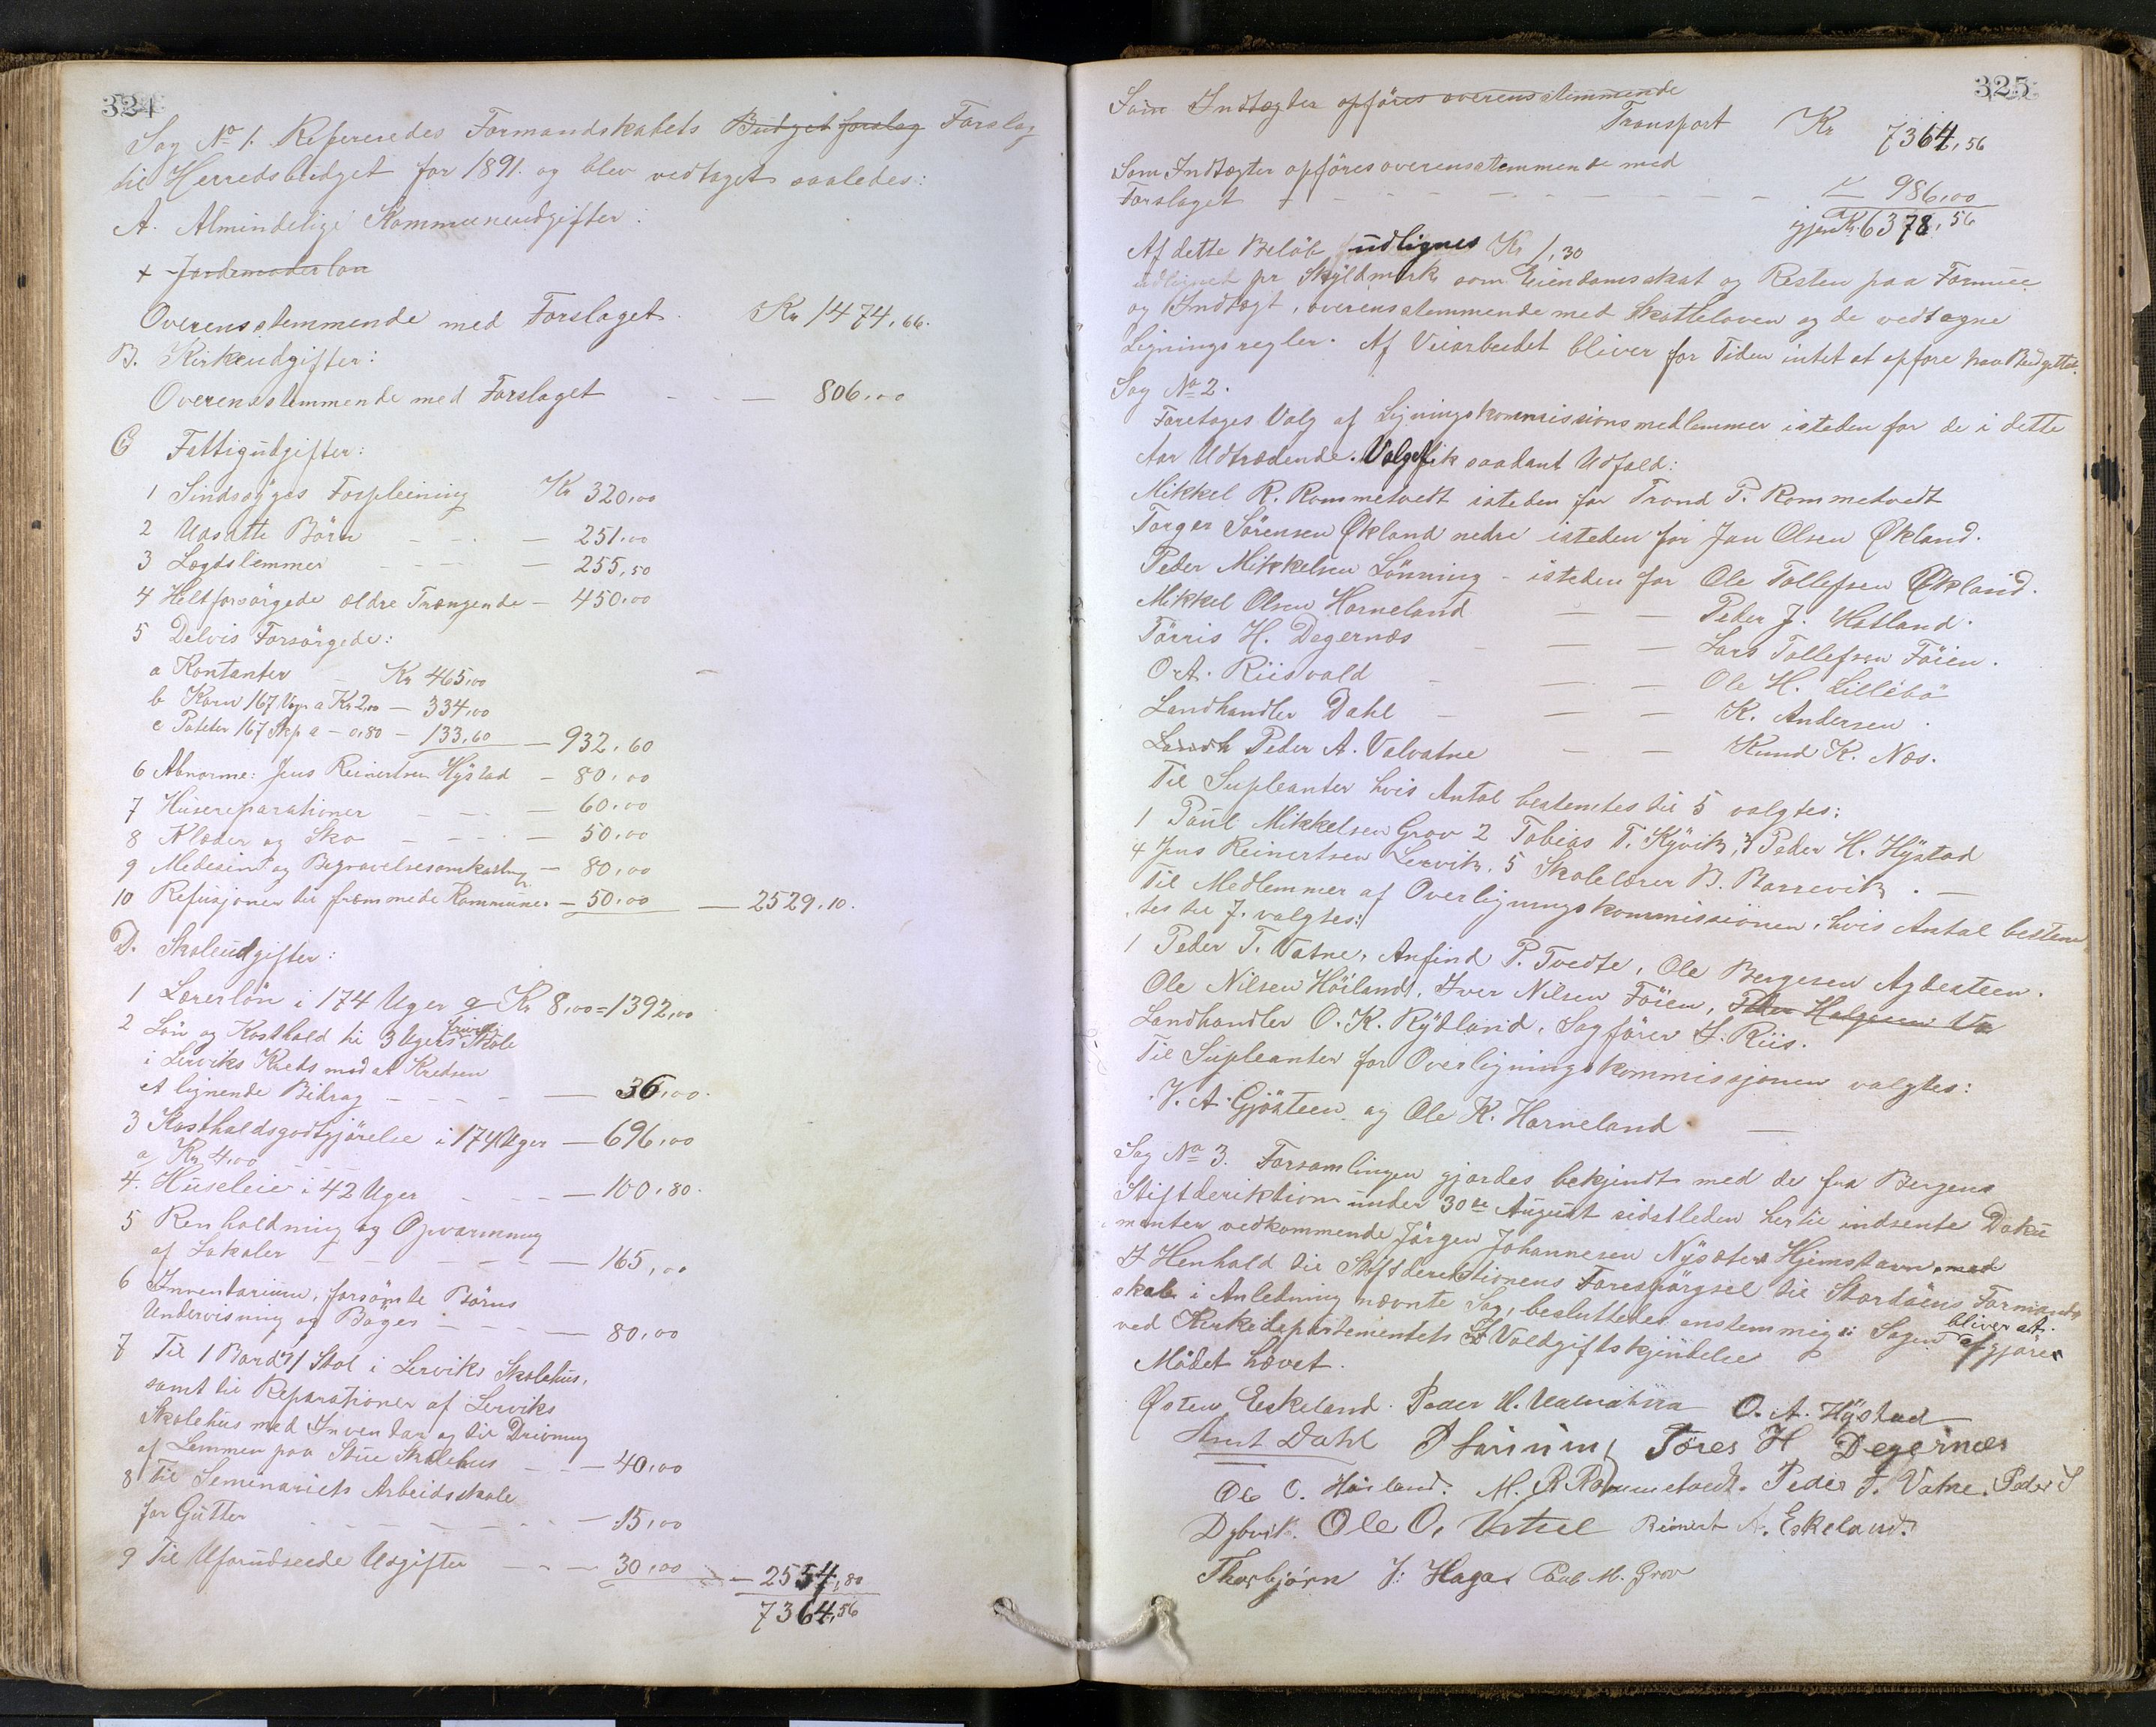 324
Sag No 1. Refereredes Formandskabets Budget forslag Forslag
til Herredsbudget for 1891. og blev vedtaget saaledes:
A. Almindelige Kommuneudgifter:
+ Jordemoderløn
Overensstemmende med Forslaget. Kr 1474,66.
B. Kirkeudgifter:
Overensstemmende med Forslaget - - — 806,00
C Fattigudgifter:
1 Sindsÿges Forpleining Kr 320,00
2 Udsatte Börn - - — 251,00
3 Lægdslemmer - - — 255,50
4 Heltforsörgede ældre Trængende — 450,00
5 Delvis Forsörgede:
a Kontanter - Kr 465,00
b Korn 167 Vog a Kr 2,00 — 334,00
c Poteter 167 Skp a — 0,80 — 133,60 — 932,60
6 Abnorme: Jens Reinertsen Hÿstad — 80,00
7 Husereparationer - - — 60,00
8 Klæder og Sko - - — 50,00
9 Medesin og Begravelsesomkostng — 80,00
10 Refusjoner til fremmede Kommuner — 50,00 — 2529,10.
D. Skoleudgifter:
1 Lærerlön i 174 Uger a Kr 8,00 = 1392,00
2 Lön og Kosthold til 3 Ugers frivil. Skole
i Lerviks Kreds mod at Kredsen
et lignende Bidrag - - - — 36,00.
3 Kostholdsgodtgjörelse i 174 Uger — 696,00
a Kr 4,00
4. Huseleie i 42 Uger - - — 100,80.
5 Renholdning og Opvarmning
af Lokaler - - - — 165,00
6 Inventarium, forsömte Börns
Undervisning og Böger - - — 80,00
7 Til 1 Bord & 1 Stol i Lerviks Skolehus,
samt til Reparationer af Lerviks
Skolehus med Inventar og til Drivning
af Lemmen paa Stue Skolehus - - — 40,00
8 Til Seminariets Arbeidsskole
for Gutter - - - - — 15,00
9 Til Uforudseede Udgifter - - — 30,00 — 2554,80
7364,56
325
Som Indtægter opföres overensstemmende
Transport Kr 7364,56
Som Indtægter opföres overensstemmende med
Forslaget - - - - - - — 986,00
igjen Kr. 6378,56
Af dette Belöb udlignes Kr 1,30
udlignet pr Skyldmark som Eiendomsskat og Resten paa Formue
og Indtægt, overensstemmende med Skatteloven og de vedtagne
Ligningsregler. Af Veiarbeidet bliver for Tiden intet at opföre paa Budgettet.
Sag No 2.
Foretages Valg af Ligningskommissionsmedlemmer isteden for de i dette
Aar Udtrædende. Valget fik saadant Udfald:
Mikkel R. Rommetvedt isteden for Trond P. Rommetvedt
Torger Sörensen Økland nedre isteden for Jan Olsen Økland.
Peder Mikkelsen Lönning - isteden for Ole Tollefsen Økland.
Mikkel Olsen Horneland — — Peder J. Hatland.
Törris H. Degernæs - — — Lars Tollefsen Föien.
O. A. Riisvold - — — Ole H. Lillebö
Landhandler Dahl - — — K. Andersen.
Landh Peder A. Valvatne — — Knud K. Næs.
Til Supleanter hvis Antal bestemtes til 5 valgtes:
1 Poul Mikkelsen Grov 2 Tobias T. Kÿvik, 3 Peder H. Hÿstad
4 Jens Reinertsen Lervik, 5 Skolelærer B. Barrevik. —
Til Medlemmer af Overligningskommissionen, hvis Antal bestem-
tes til 7. valgtes:
1 Peder T. Vatne, Anfind P. Tvedte, Ole Bergesen Agdesteen.
Ole Nilsen Höiland, Iver Nilsen Föien, Peder Helgesen Va
Landhandler O. K. Rÿdland, Sagförer S. Riis.
Til Supleanter for Overligningskommissjonen valgtes:
V. A. Gjösteen og Ole K. Horneland. —
Sag No 3. Forsamlingen gjordes bekjendt med de fra Bergens
Stiftderiktion under 30te August sidstleden hertil indsente Doku-
menter vedkommende Jörgen Johannesen Nÿsæter Hjemstavn, med
I Henhold til Stiftderektionens Forespörgsel til Stordöens Formand-
skab i Anledning nævnte Sag, besluttedes enstemmig: Sagen bliver at
ved Kirkedepartementets Voldgiftskjendelse afgjöres
Mödet hævet.
Østen Eskeland. Peder A. Valvatna O. A. Hÿstad
Knut Dahl P Lönning Töres H Degernæs
Ole O. Höiland. M. R Rommetvedt. Peder T. Vatne. Peder S
Dybvik. Ole O. Vatne Reinert A. Eskeland.
Thorbjørn J: Haga. Poul M. Grov